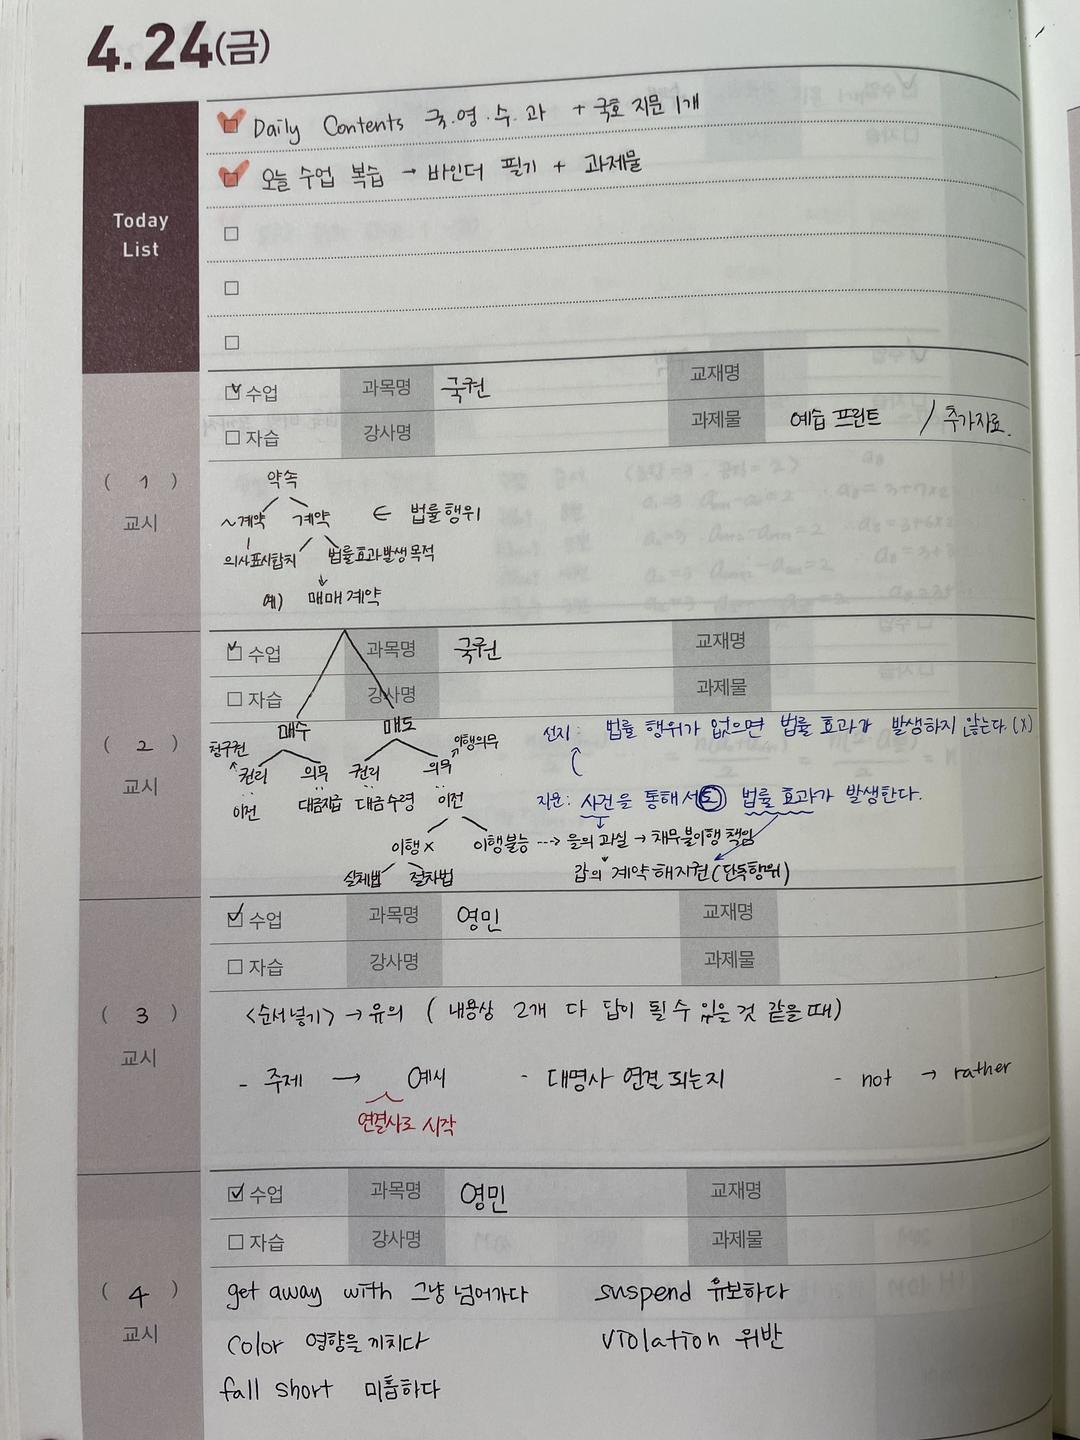 4.24(금)
Today List
Daily Contents 국.영.수.과 + 국호 지문 1개
오늘 수업 복습 → 바인더 필기 + 과제물
(1)교시
수업 과목명 국권 교재명
자습 강사명 과제물 예습 프린트 / 추가자료.
약속
~계약 계약 ∈ 법률행위
의사표시합치 법률효과발생 목적
예) 매매계약
(2)교시
수업 과목명 국권 교재명
자습 강사명 과제물
매수 매도
청구권 권리 의무 권리 의무 이행의무
이전 대금지급 대금수령 이전
이행× 이행불능 --→ 을의 과실 → 채무불이행 책임
실체법 절차법 갑의 계약해지권(단독행위)
선지: 법률 행위가 없으면 법률 효과가 발생하지 않는다.(X)
지문: 사건을 통해서도 법률 효과가 발생한다.
(3)교시
수업 과목명 영민 교재명
자습 강사명 과제물
<순서넣기> → 유의 (내용상 2개 다 답이 될 수 있을 것 같을 때)
- 주제 → 예시 - 대명사 연결 되는지 - not → rather
연결사로 시작
(4)교시
수업 과목명 영민 교재명
자습 강사명 과제물
get away with 그냥 넘어가다 suspend 유보하다
color 영향을 끼치다 violation 위반
fall short 미흡하다